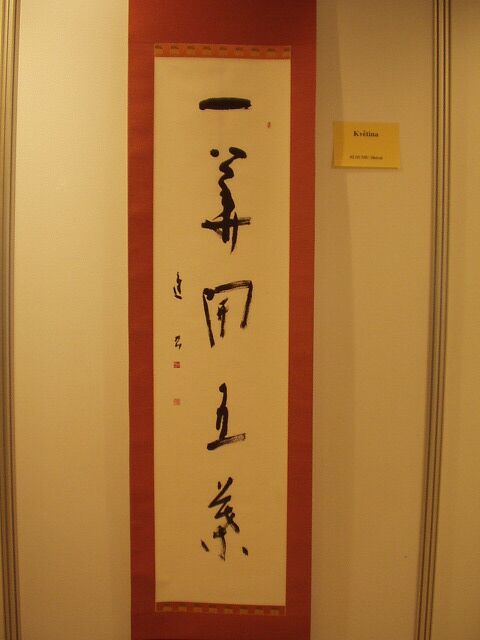 一華開五葉
Květina